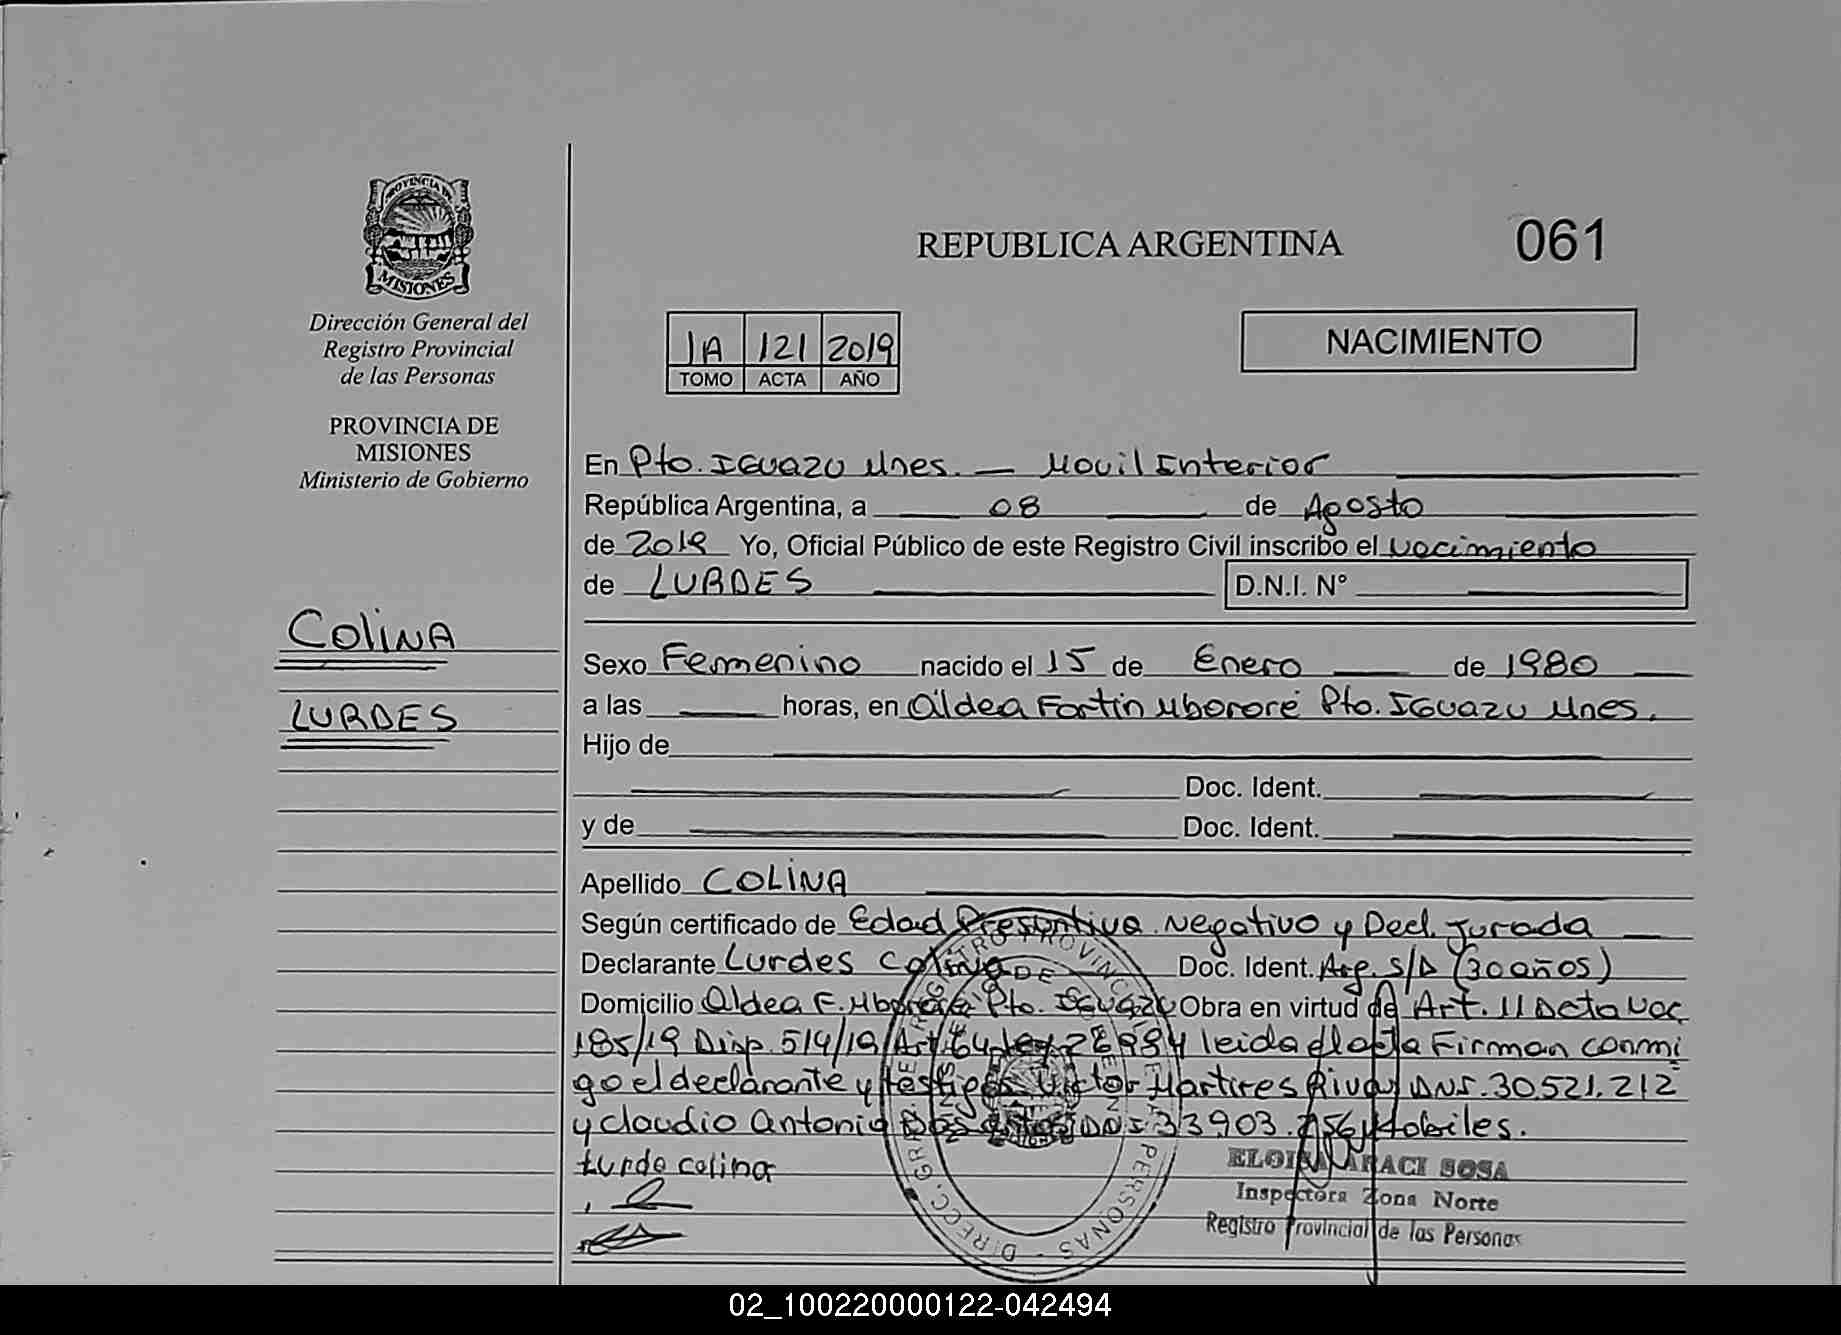 PROVINCIA DE
MISIONES
Dirección General del
Registro Provincial
de las Personas
PROVINCIA DE
MISIONES
Ministerio de Gobierno
COLINA
LURDES
REPUBLICA ARGENTINA
061
1A 121 2019
TOMO ACTA AÑO
NACIMIENTO
En Pto. IGUAZU Mnes. — Movil Interior
República Argentina, a 08 de Agosto
de 2019 Yo, Oficial Público de este Registro Civil inscribo el nacimiento
de LURDES D.N.I. N°
Sexo Femenino nacido el 15 de Enero de 1980
a las horas, en Aldea Fortin Mbororé Pto. IGUAZU Mnes.
Hijo de
Doc. Ident.
y de Doc. Ident.
Apellido COLINA
Según certificado de Edad Presuntiva Negativo y Decl. Jurada
Declarante Lurdes Colina Doc. Ident. Arg. S/D (30 años)
Domicilio Aldea F. Mbororé Pto. IGUAZU Obra en virtud de Art. 11 Dcto Nac
185/19 Disp. 514/19 Art. 64 Ley 26994 leida el acta Firman conmi
go el declarante y testigos Victor Martires Rivas DNI. 30.521.212
y Claudio Antonio DNI 33903. 256 Habiles.
Lurde colina
ELOISA ARACI SOSA
Inspectora Zona Norte
Registro Provincial de las Personas
02_100220000122-042494